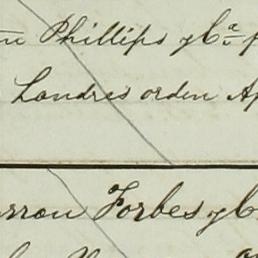 Phillips y Ca
Londres orden
Forbes y C